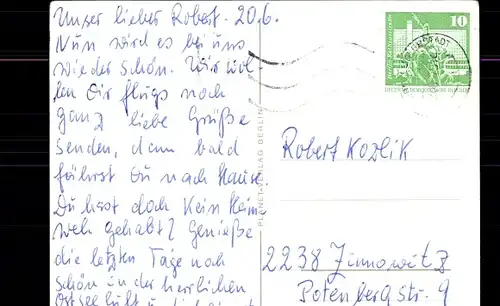 Unser lieber Robert. 20.6.
Nun wird es bei uns
wieder schön. Wir wol-
len Dir flugs noch
ganz liebe Grüße
senden, dann bald
fährst Du nach Hause.
Du hast doch kein Heim-
weh gehabt? Genieße
die letzten Tage noch
schön in der herrlichen
Ostseeluft u.
PLANET-VERLAG BERLIN
10
Robert Kozlik
2238 Zinnowitz
Potenbergstr. 9